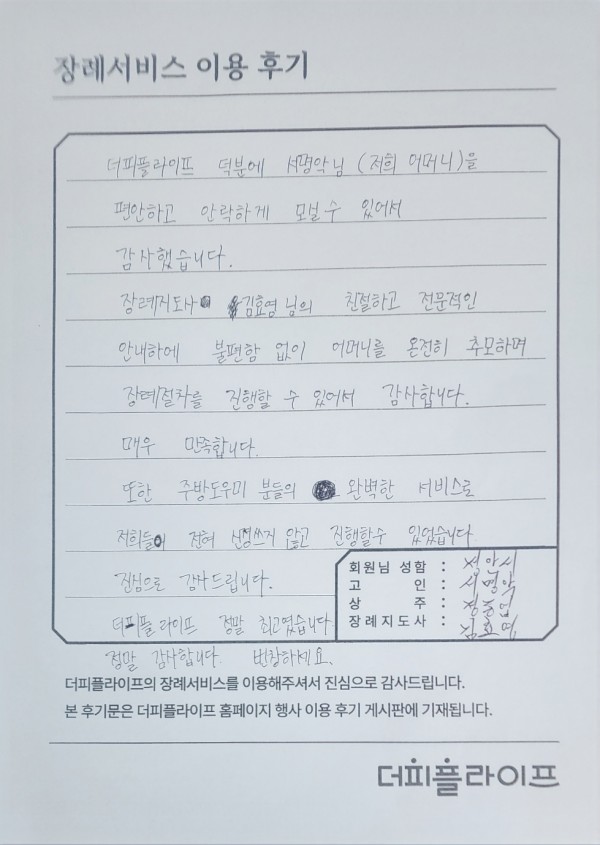 장례서비스 이용 후기
더피플라이프 덕분에 서명악님 (저희 어머니)을
편안하고 안락하게 모실 수 있어서
감사했습니다.
장례지도사 김효영님의 친절하고 전문적인
안내하에 불편함 없이 어머니를 온전히 추모하며
장례절차를 진행할 수 있어서 감사합니다.
매우 만족합니다.
또한 주방도우미 분들의 완벽한 서비스로
저희들이 전혀 신경쓰지 않고 진행할수 있었습니다
진심으로 감사드립니다.
더피플라이프 정말 최고였습니다.
정말 감사합니다. 번창하세요.
회원님 성함 :
고 인 : 서명악
상 주 :
장례지도사 : 김효영
더피플라이프의 장례서비스를 이용해주셔서 진심으로 감사드립니다.
본 후기문은 더피플라이프 홈페이지 행사 이용 후기 게시판에 기재됩니다.
더피플라이프